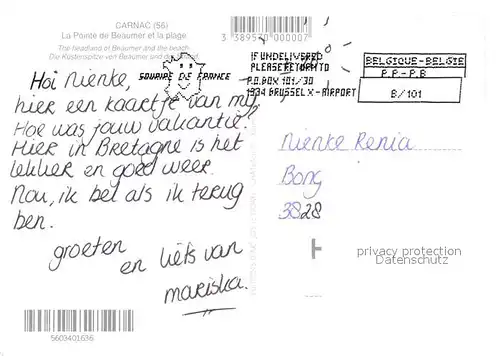 CARNAC (56)
La Pointe de Beaumer et la plage
The headland of Beaumer and the beach
Die Küstenspitze von Beaumer und der
3 389570 000007
SOURIRE DE FRANCE
IF UNDELIVERED
PLEASE RETURN TO
P.O. BOX 101/30
1934 BRUSSEL X - AIRPORT
BELGIQUE-BELGIE
P.P.-P.B
B/101
Hoi Nienke,
hier een kaartje van mij.
Hoe was jouw vakantie?
Hier in Bretagne is het
lekker en goed weer.
Nou, ik bel als ik terug
ben.
groeten
en liefs van
mariska.
Nienke Renia
Bong
3828
privacy protection
Datenschutz
5603401636